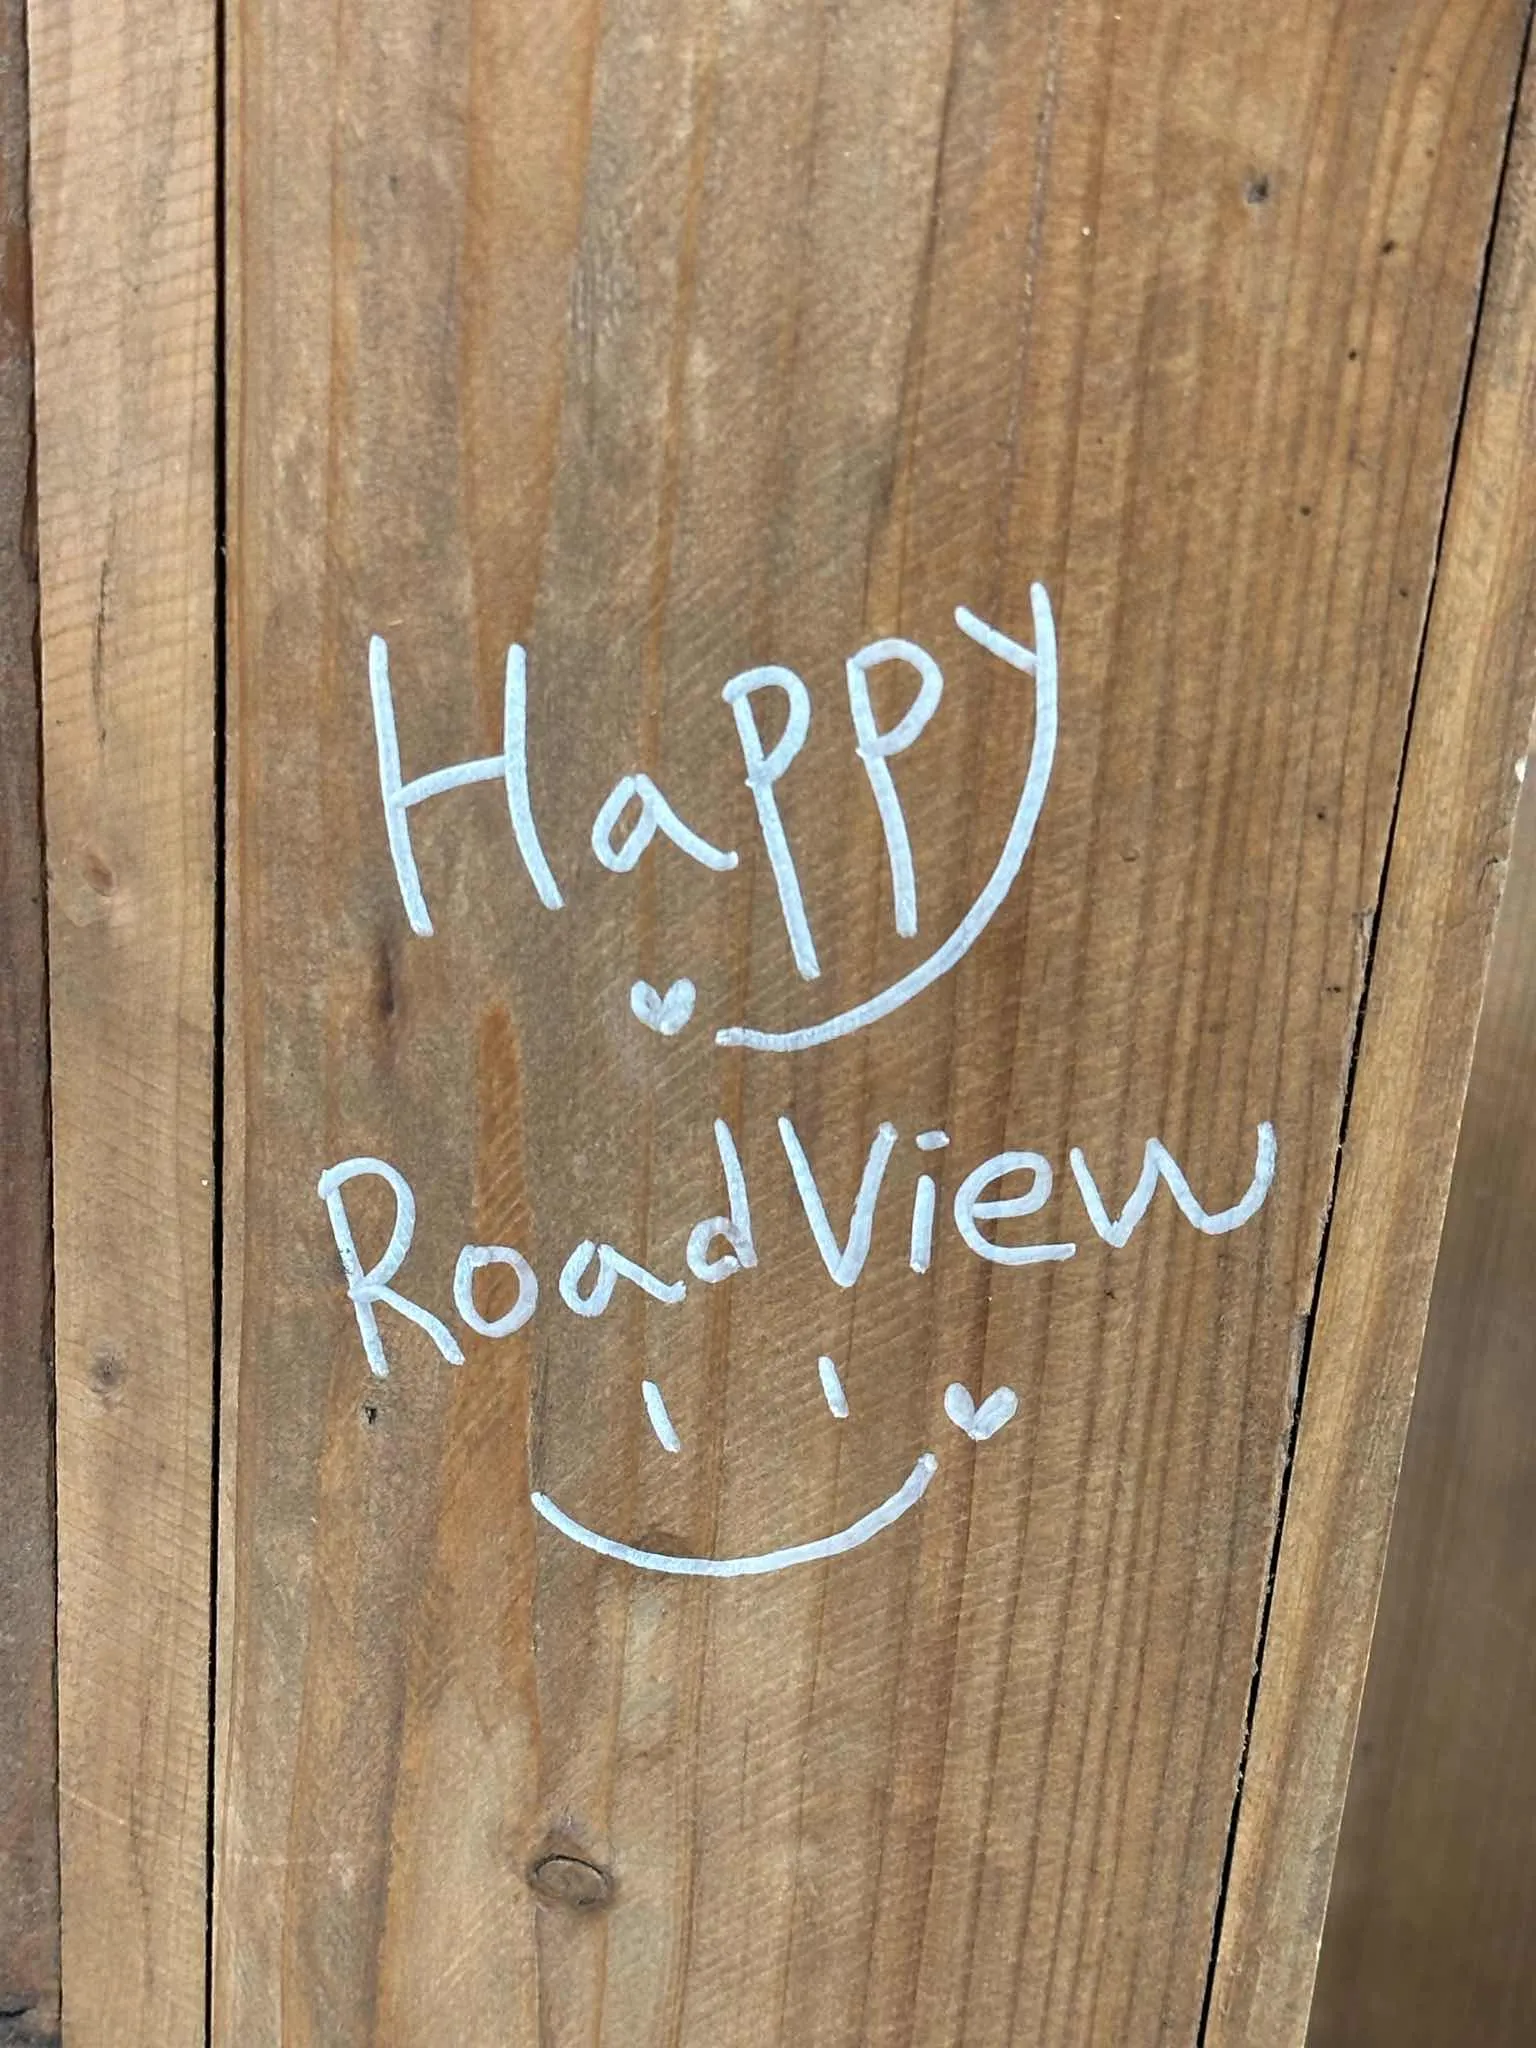 Happy
RoadView